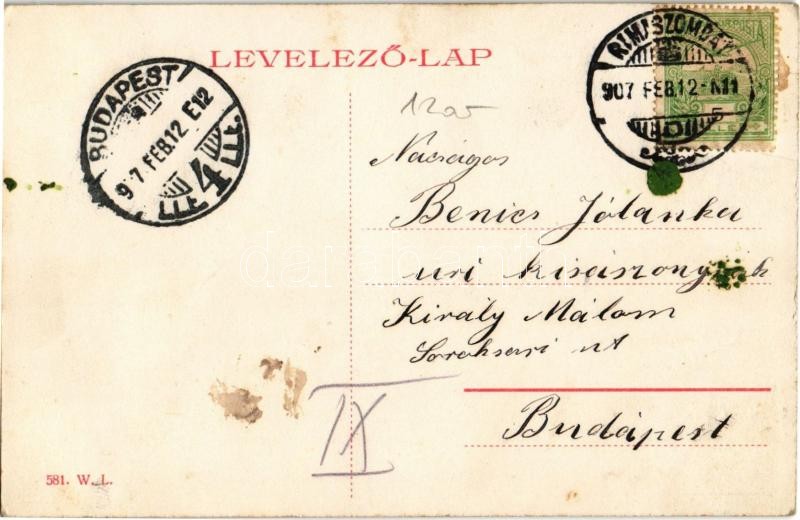 LEVELEZŐ-LAP
BUDAPEST
907 FEB.12 E12
4
RIMASZOMBAT
907 FEB.12-N11
5
Nacságos
Benics Jólanka
uri kisászonynak
Király Málom
Soroksari ut
Budápest
IX
581. W. L.